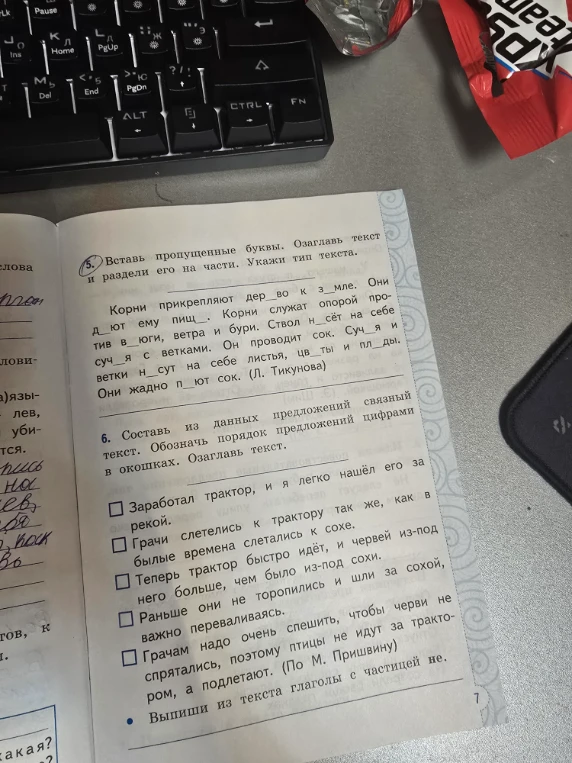 Pause
Ins
Home
PgUp
Del
End
PgOn
ALT
CTRL
FN
team
слова
лови-
а)язы-
лев,
уби-
тся.
на
тов, к
какая?
5. Вставь пропущенные буквы. Озаглавь текст
и раздели его на части. Укажи тип текста.
Корни прикрепляют дер__во к з__мле. Они
д__ют ему пищ__. Корни служат опорой про-
тив в__юги, ветра и бури. Ствол н__сёт на себе
суч__я с ветками. Он проводит сок. Суч__я и
ветки н__сут на себе листья, цв__ты и пл__ды.
Они жадно п__ют сок. (Л. Тикунова)
6. Составь из данных предложений связный
текст. Обозначь порядок предложений цифрами
в окошках. Озаглавь текст.
Заработал трактор, и я легко нашёл его за
рекой.
Грачи слетелись к трактору так же, как в
былые времена слетались к сохе.
Теперь трактор быстро идёт, и червей из-под
него больше, чем было из-под сохи.
Раньше они не торопились и шли за сохой,
важно переваливаясь.
Грачам надо очень спешить, чтобы черви не
спрятались, поэтому птицы не идут за тракто-
ром, а подлетают. (По М. Пришвину)
• Выпиши из текста глаголы с частицей не.
7